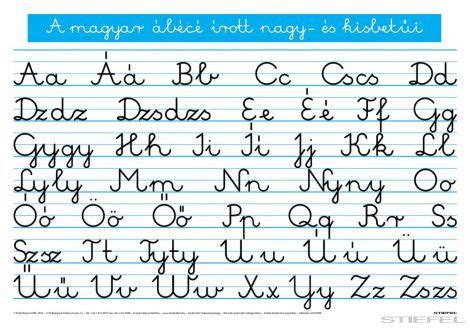 A magyar ábécé írott nagy- és kisbetűi
Aa Áá Bb Cc Cscs Dd
Dzdz Dzsdzs Ee Éé Ff Gg
Gygy Hh Ii Íí Jj Kk Ll
Lyly Mm Nn Nyny Oo
Óó Öö Őő Pp Qq Rr Ss
Szsz Tt Tyty Uu Úú Üü
Űű Vv Ww Xx Yy Zz Zszs
STIEFEL
STIEFEL